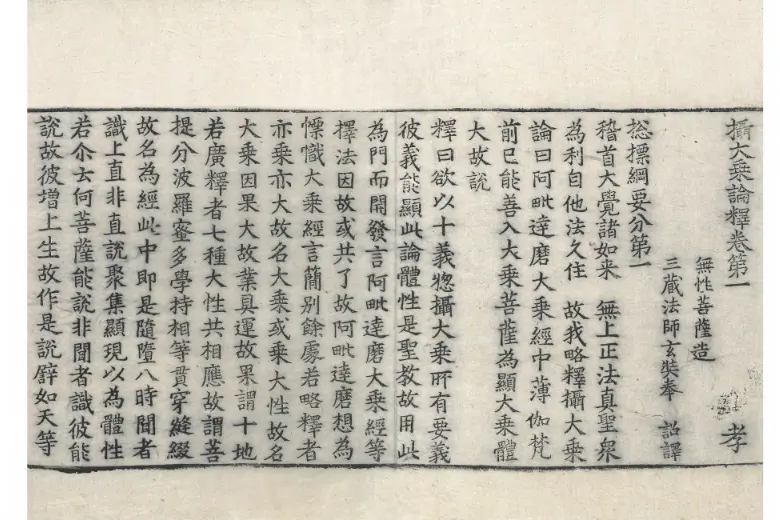 攝大乗論釋卷第一　孝
無性菩薩造
三藏法師玄奘奉　詔譯
揔摽綱要分第一
稽首大覺諸如来　無上正法真聖衆
為利自他法久住　故我略釋攝大乗
論曰阿毗達磨大乗經中薄伽梵
前已能善入大乗菩薩為顯大乗體
大故說
釋曰欲以十義揔攝大乗所有要義
彼義能顯此論體性是聖教故用此
為門而開發言阿毗達磨大乗經等
擇法因故或共了故阿毗達磨想為
慓幟大乗經言簡别餘處若略釋者
亦乗亦大故名大乗或乗大性故名
大乗因果大故業具運故果謂十地
若廣釋者七種大性共相應故謂菩
提分波羅蜜多學持相等貫穿縫綴
故名為經此中即是隨墮八時聞者
識上直非直說聚集顯現以為體性
若尒云何菩薩能說非聞者識彼能
說故彼增上生故作是說譬如天等